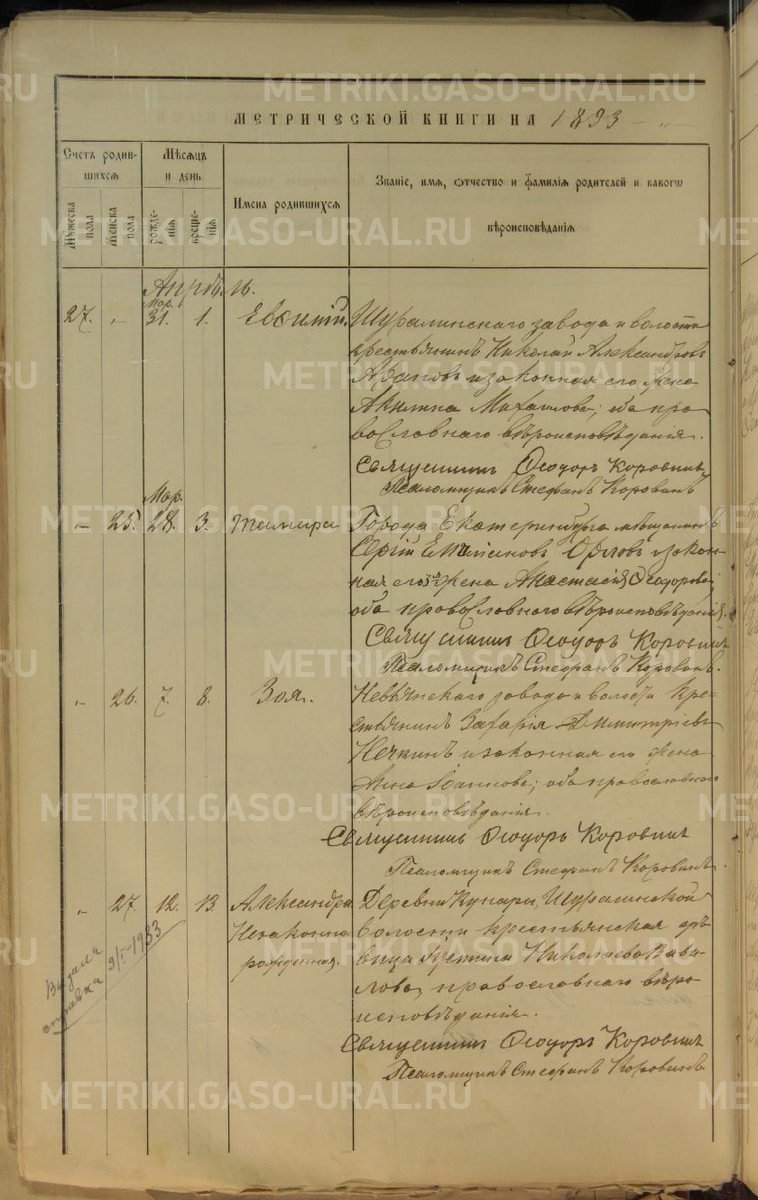 МЕТРИЧЕСКОЙ КНИГИ НА 1893
Счетъ родив-
шихся
Мѣсяцъ
и день
Имена родившихся
Званіе, имя, отчество и фамилія родителей и какого
вѣроисповѣданія
Мужеска
пола
Женска
пола
рожде-
нія
креще-
нія
Апрѣль.
Мар.
27. " 31. 1. Евѳимій. Шуралинскаго завода и волости
крестьянинъ Николай Александровъ
и законная его жена
Акилина Михаилова; оба пра-
вославнаго вѣроисповѣданія.
Священникъ Ѳеодоръ Коровинъ
Псаломщикъ Стефанъ Коровинъ
Мар.
" 25. 28. 3. Тамара Города Екатеринбурга мѣщанинъ
Сергій Емиліановъ Орловъ и закон-
ная его жена Анастасія Ѳеодорова
оба православнаго вѣроисповѣданія.
Священникъ Ѳеодоръ Коровинъ
Псаломщикъ Стефанъ Коровинъ.
" 26. 7. 8. Зоя. Невьянскаго завода и волости кре-
стьянинъ Захарія Димитріевъ
Нечкинъ и законная его жена
Анна Іоаннова; оба православнаго
вѣроисповѣданія.
Священникъ Ѳеодоръ Коровинъ
Псаломщикъ Стефанъ Коровинъ.
" 27. 12. 13. Александра Деревни Кунары, Шуралинской
Незаконно волости крестьянская дѣ-
рожденная. вица Николаева Вави-
лова, православнаго вѣро-
исповѣданія.
Священникъ Ѳеодоръ Коровинъ
Псаломщикъ Стефанъ Коровинъ
справка 3/I-1933
METRIKI.GASO-URAL.RU